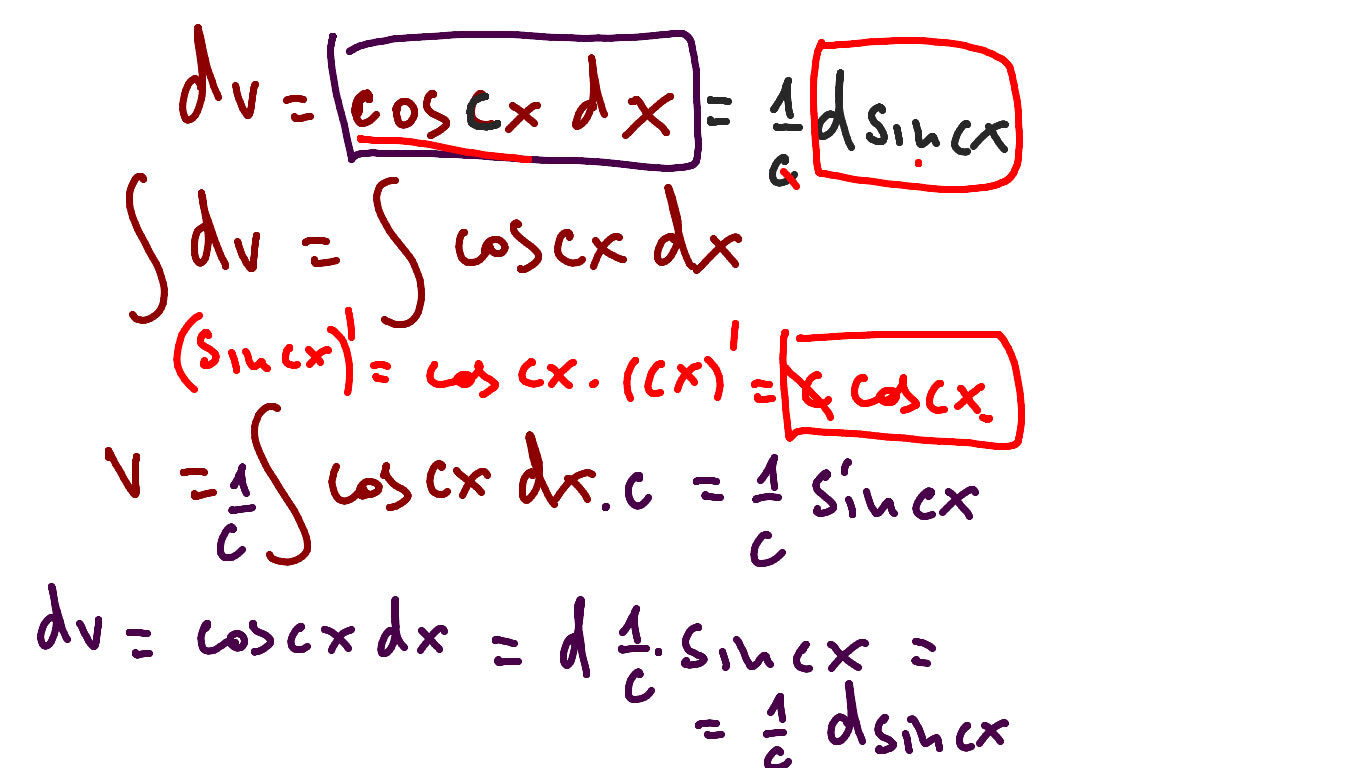 dv = cos cx dx = 1/c d sin cx
∫ dv = ∫ cos cx dx
(sin cx)' = cos cx · (cx)' = c cos cx.
v = 1/c ∫ cos cx dx · c = 1/c sin cx
dv = cos cx dx = d 1/c · sin cx =
= 1/c d sin cx